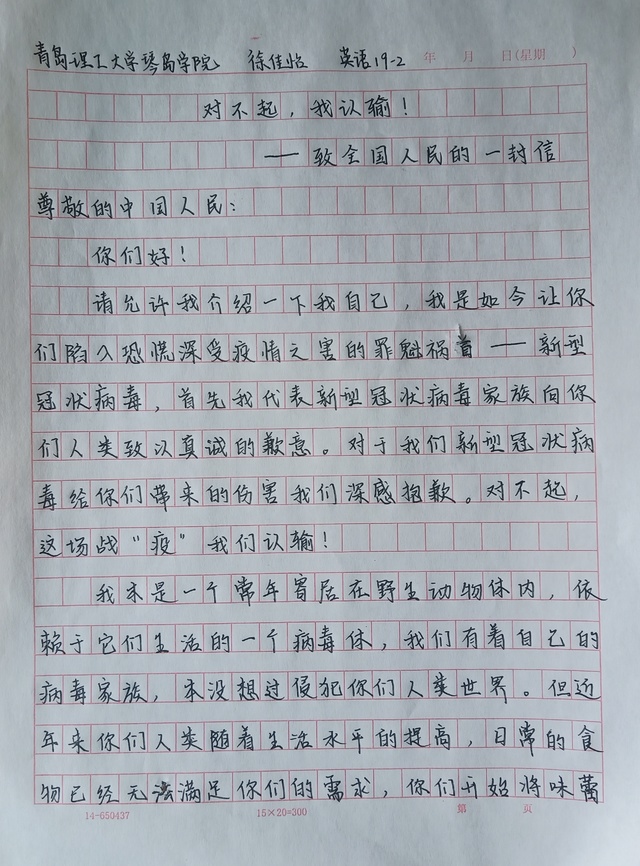 青岛理工大学琴岛学院 徐佳怡 英语19-2 年 月 日(星期 )
对不起，我认输！
——致全国人民的一封信
尊敬的中国人民：
你们好！
请允许我介绍一下我自己，我是如今让你
们陷入恐慌深受疫情之害的罪魁祸首——新型
冠状病毒，首先我代表新型冠状病毒家族向你
们人类致以真诚的歉意。对于我们新型冠状病
毒给你们带来的伤害我们深感抱歉。对不起，
这场战“疫”我们认输！
我本是一个常年寄居在野生动物体内，依
赖于它们生活的一个病毒体，我们有着自己的
病毒家族，本没想过侵犯你们人类世界。但近
年来你们人类随着生活水平的提高，日常的食
物已经无法满足你们的需求，你们开始将味蕾
14-650437 15×20=300 第 页